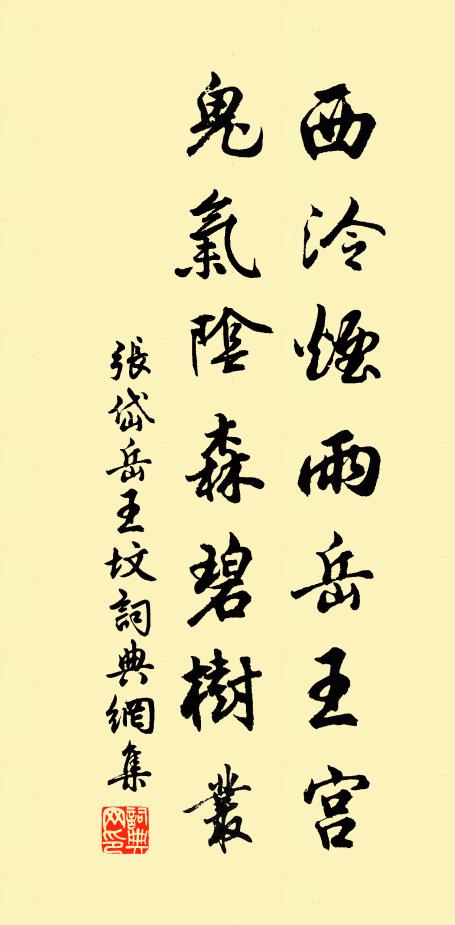 西泠煙雨岳王宮
鬼氣陰森碧樹叢
張岱岳王墳詞典網集
詞典網印